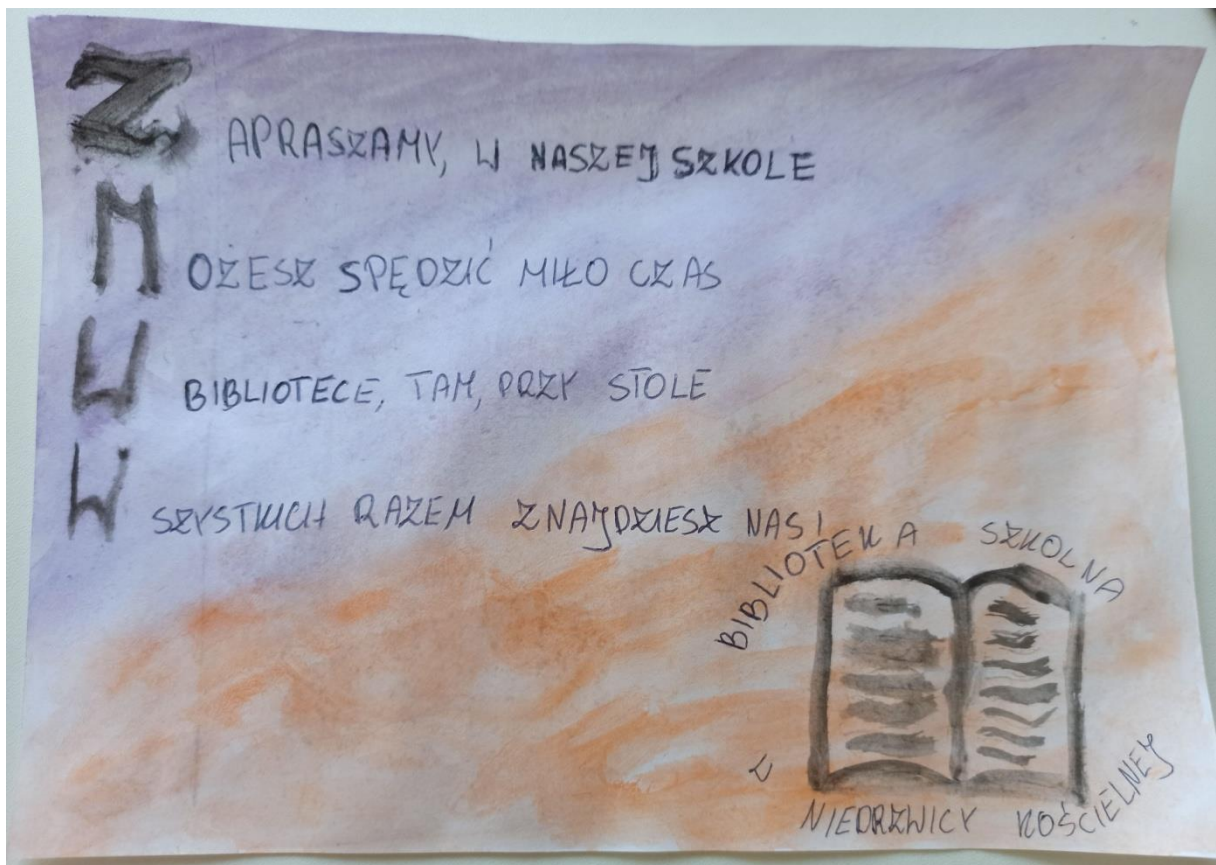 ZAPRASZAMY, W NASZEJ SZKOLE
MOŻESZ SPĘDZIĆ MIŁO CZAS
W BIBLIOTECE, TAM, PRZY STOLE
WSZYSTKICH RAZEM ZNAJDZIESZ NAS!
BIBLIOTEKA SZKOLNA
Z NIEDRZWICY KOŚCIELNEJ